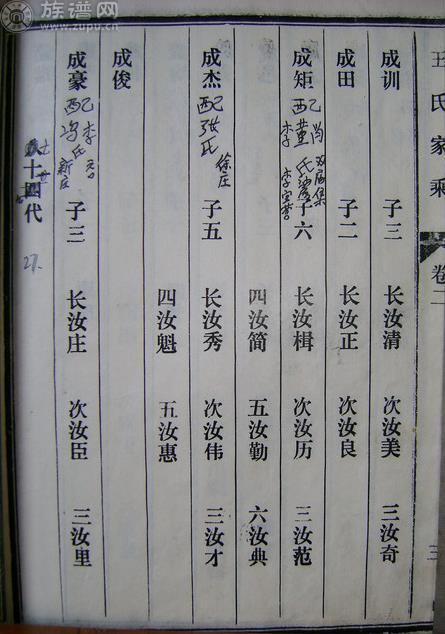 族谱网
www.zupu.cn
王氏家乘
卷二
三
成训 子三 长汝清 次汝美 三汝奇
成田 子二 长汝正 次汝良
成矩 配 董氏 子六 长汝楫 次汝历 三汝范
四汝简 五汝勤 六汝典
成杰 配张氏 徐庄 子五 长汝秀 次汝伟 三汝才
四汝魁 五汝惠
成俊
成豪 配 李氏 新庄 子三 长汝庄 次汝臣 三汝里
十四代
27